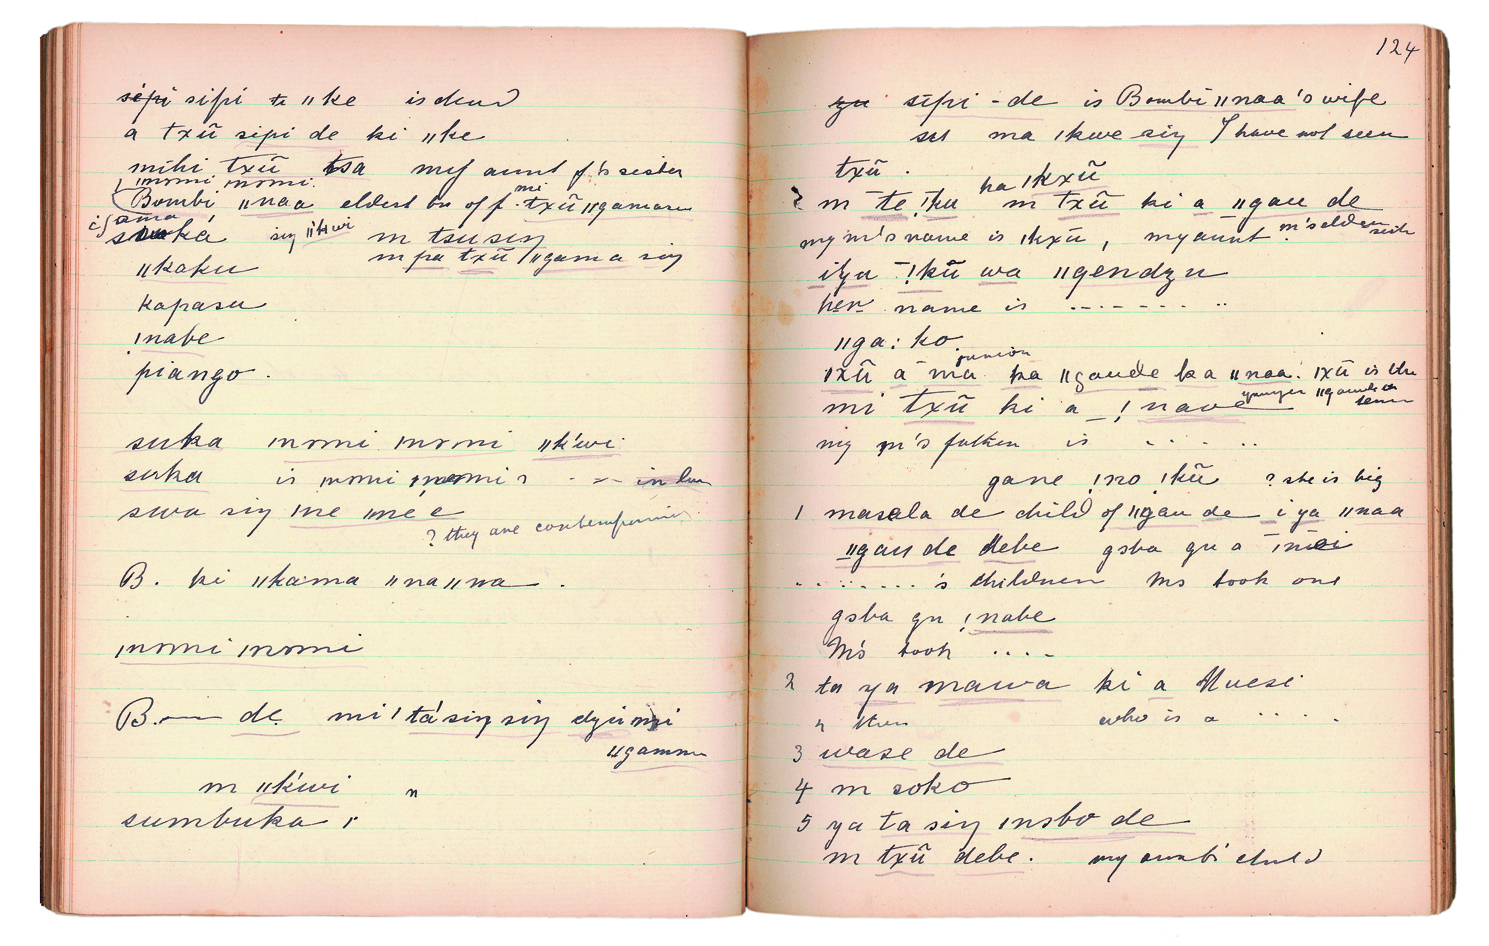 sipi sipi te ǁke is dead
a txū sipi de ki ǁke
mihi txū tsa my aunt f's sister
ınomi ınomi
Bombi ǁnaa eldest br of f. mi txū ǁgamasu
suka siŋ ǁk'wi m tsu siŋ
m pa txū ǁgama siŋ
ǁkaku
kapasu
ınabe
piango .
suka ınomi ınomi ǁk'wi
suka is ınomi ınomi? in law
siwa siŋ ıne ıne e
? they are contemporaries
B. ki ǁkama ǁnaǁna .
ınomi ınomi
B.—— de. mi! tá siŋ siŋ dʒu mi
ǁgamma
m ǁk'wi "
sumbuka ı
124
sipi - de is Bombi ǁnaa's wife
ma ıkwe siŋ I have not seen
txū .
ha ıkxū
? m te !ku m txū ki a ǁgau de
my m's name is ıkxū, my aunt m's elder sister
iya !kū wa ǁgendzu
her name is - - - - - - - ..
ǁga: ko.
junior
ıxū a ma ka ǁgaude ka ǁnaa. ıxū is the
younger ǁgaude
senior
mi txū ki a ! nave
my m's father is . . . . .
gane !no !kū ? she is big
1 masela de child of ǁgau de i ya ǁnaa
ǁgau de debe gsba gu a ınei
. . . . . . . 's children Ms took one
gsba gu !nabe
Ms took . . . .
2 ta ya mawa ki a Muesi
" then who is a . . . . .
3 wase de
4 m soko
5 ya ta siŋ ınsbo de
m txū debe. my aunt's child